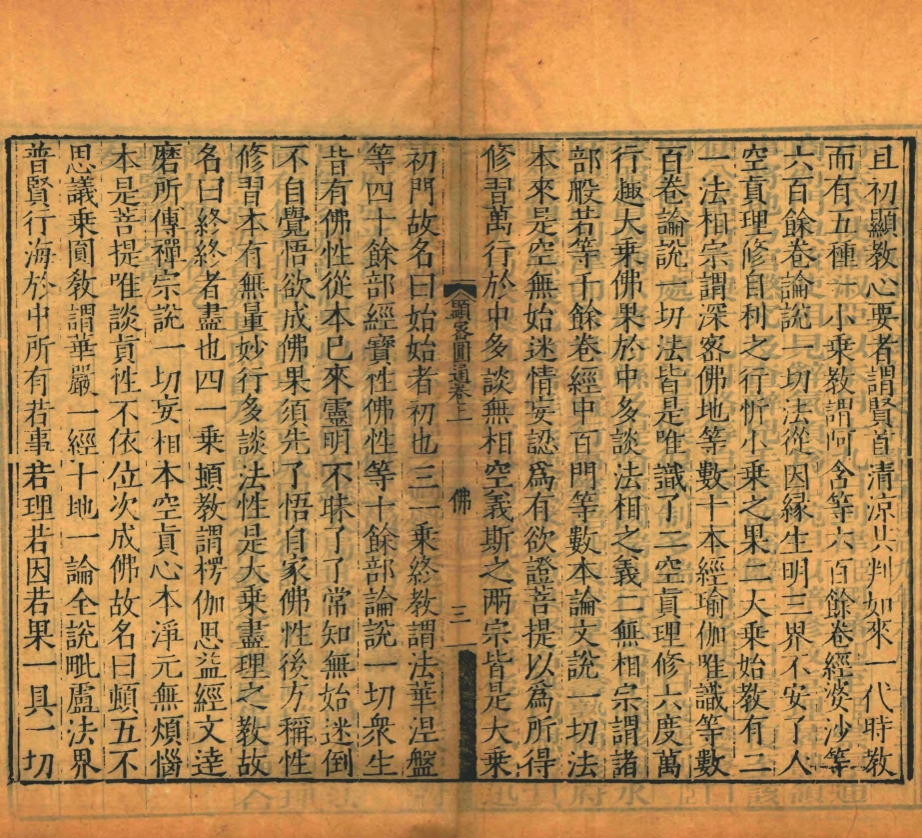 且初顯教心要者謂賢首清涼共判如來一代時教
而有五種一小乘教謂阿含等六百餘卷經婆沙等
六百餘卷論說一切法從因緣生明三界不安了人
空眞理修自利之行忻小乘之果二大乘始教有二
一法相宗謂深密佛地等數十本經瑜伽唯識等數
百卷論說一切法皆是唯識了二空眞理修六度萬
行趣大乘佛果於中多談法相之義二無相宗謂諸
部般若等千餘卷經中百門等數本論文說一切法
本來是空無始迷情妄認爲有欲證菩提以爲所得
修習萬行於中多談無相空義斯之兩宗皆是大乘
顯密圓通卷上 佛 三
初門故名曰始始者初也三一乘終教謂法華涅盤
等四十餘部經寶性佛性等十餘部論說一切衆生
皆有佛性從本已來靈明不昧了了常知無始迷倒
不自覺悟欲成佛果須先了悟自家佛性後方稱性
修習本有無量妙行多談法性是大乘盡理之教故
名曰終終者盡也四一乘頓教謂楞伽思益經文達
磨所傳禪宗說一切妄相本空眞心本淨元無煩惱
本是菩提唯談眞性不依位次成佛故名曰頓五不
思議乘圓教謂華嚴一經十地一論全說毗盧法界
普賢行海於中所有若事若理若因若果一具一切